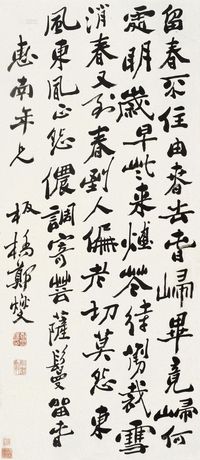 留春不住由春去春歸畢竟歸何
處明歲早些來煙花待剪裁雪
消春又到春到人偏老切莫怨東
風東風正怨儂調寄菩薩鬘留春
惠南年兄 板橋鄭燮